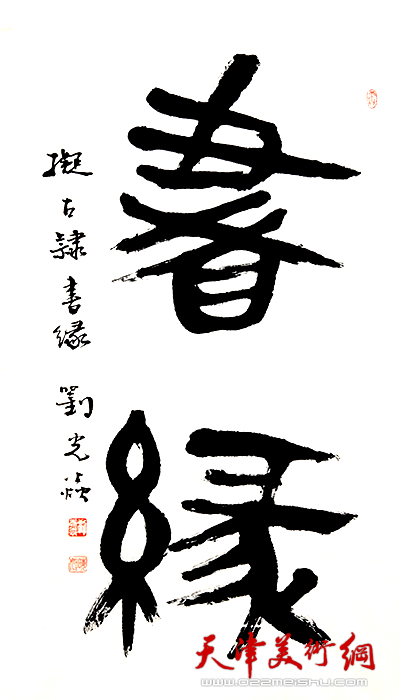 書緣
擬古隸書緣 劉光焱
天津美術網
www.022meishu.com